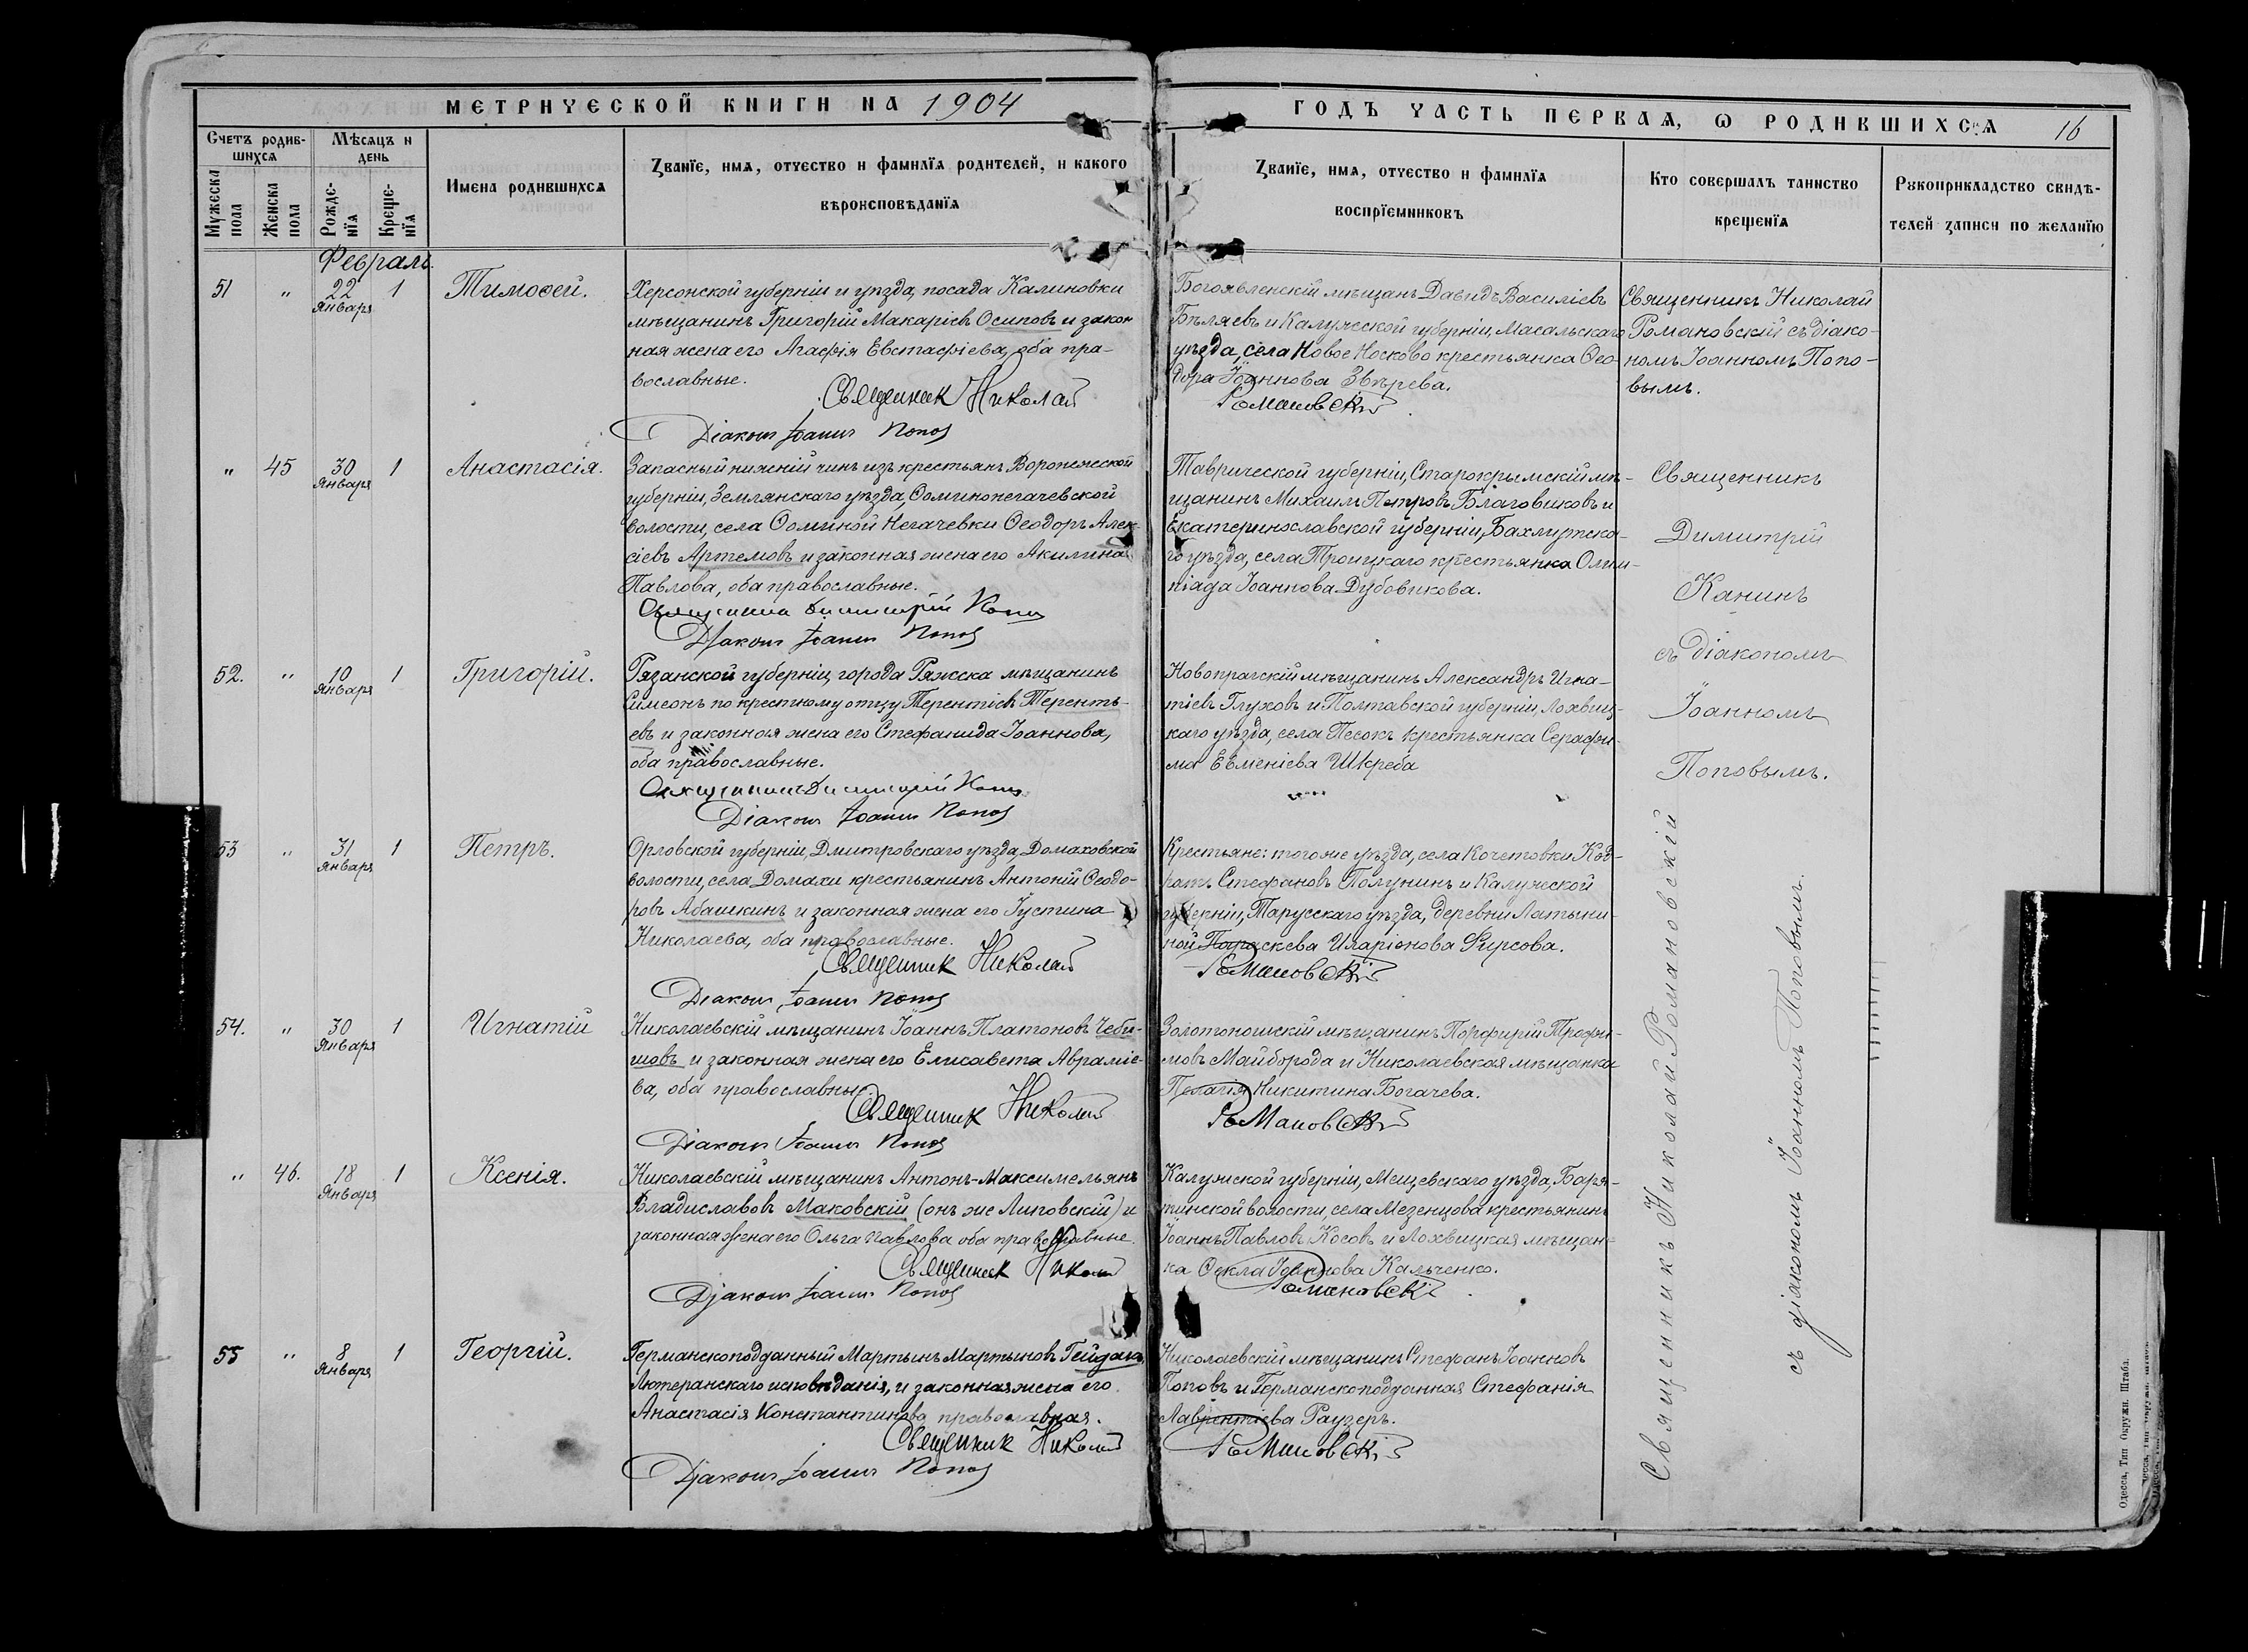 МЕТРИЧЕСКОЙ КНИГИ НА 1904
ГОДЪ ЧАСТЬ ПЕРВАЯ, Ѡ РОДИВШИХСЯ 16
Счетъ родив-
шихся
Мѣсяцъ и
день
Мужеска
пола
Женска
пола
Рожде-
нїя
Креще-
нїя
Имена родившихся
Званїе, имя, отчество и фамилїя родителей, и какого
вѣроисповѣданїя
Званїе, имя, отчество и фамилїя
воспрїемниковъ
Кто совершалъ таинство
крещенїя
Рукоприкладство свидѣ-
телей записи по желанїю
Февраль.
51 " 22 Января 1 Тимоѳей.
Херсонской губерніи и уѣзда, посада Калиновки
мѣщанинъ Григорій Макаріевъ Осиповъ и закон
ная жена его Агафія Евстафіева, оба пра-
вославные.
Священник Николай
Романовскій
Діаконъ Іоаннъ Попов
Богоявленскій мѣщанъ Давидъ Василіевъ
Бѣляевъ и Калужской губерніи, Масальскаго
уѣзда, села Новое Носково крестьянка Ѳео-
дора Іоаннова Звѣрева.
Священникъ Николай
Романовскій съ діако-
номъ Іоанномъ Попо-
вымъ.
" 45 30 Января 1 Анастасія.
Запасный нижній чинъ изъ крестьянъ Воронежской
губерніи, Землянскаго уѣзда, Ѳоминонегачевской
волости, села Ѳоминой Негачевки Ѳеодоръ Алек
сіевъ Артемовъ и законная жена его Акилина
Павлова, оба православные.
Священникъ Димитрій Канин
Діаконъ Іоаннъ Попов
Таврической губерніи, Старокрымскій мѣ-
щанинъ Михаилъ Петровъ Благовиковъ и
Екатеринославской губерніи, Бахмутска-
го уѣзда, села Троицкаго крестьянка Олим-
піада Іоаннова Дубовикова.
Священникъ
Димитрій
Канинъ
съ діакономъ
Іоанномъ
Поповымъ.
52. " 10 Января 1 Григорій.
Рязанской губерніи, города Ряжска мѣщанинъ
Симеонъ по крестному отцу Терентіевъ Теренть-
евъ и законная жена его Стефанида Іоаннова,
оба православные.
Священникъ Димитрій Канин
Діаконъ Іоаннъ Попов
Новопрагскій мѣщанинъ Александръ Игна-
тіевъ Глуховъ и Полтавской губерніи, Лохвиц-
каго уѣзда, села Песокъ крестьянка Серафи-
ма Евменіева Шкреба
53 " 31 Января 1 Петръ.
Орловской губерніи, Дмитровскаго уѣзда, Домаховской
волости, села Домахи крестьянинъ Антоній Ѳеодо-
ровъ Абашкинъ и законная жена его Іустина
Николаева, оба православные.
Священник Николай
Романовскій
Діаконъ Іоаннъ Попов
Крестьяне: того же уѣзда, села Кочетовки Код-
ратъ Стефановъ Полунинъ и Калужской
губерніи, Тарусскаго уѣзда, деревни Латыни-
ной Параскева Иларіонова Фирсова.
54. " 30 Января 1 Игнатій
Николаевскій мѣщанинъ Іоаннъ Платоновъ Чебы-
шовъ и законная жена его Елисавета Авраміе-
ва, оба православные.
Священник Николай
Романовскій
Діаконъ Іоаннъ Попов
Золотоношскій мѣщанинъ Порфирій Трофи-
мовъ Майборода и Николаевская мѣщанка
Пелагія Никитина Богачева.
" 46. 18 Января 1 Ксенія.
Николаевскій мѣщанинъ Антонъ-Максимельянъ
Владиславовъ Маковскій (онъ же Липовскій) и
законная жена его Ольга Павлова оба православные.
Священник Николай
Романовскій
Діаконъ Іоаннъ Попов
Калужской губерніи, Мещевскаго уѣзда, Баря-
тинской волости, села Мезенцова крестьянинъ
Іоаннъ Павловъ Косовъ и Лохвицкая мѣщан-
ка Ѳекла Іоаннова Кальченко.
55 " 8 Января 1 Георгій.
Германскоподданный Мартынъ Мартыновъ Гейданъ,
Лютеранскаго исповѣданія, и законная жена его
Анастасія Константинова православная.
Священник Николай
Романовскій
Діаконъ Іоаннъ Попов
Николаевскій мѣщанинъ Стефанъ Іоанновъ
Поповъ и Германскоподданная Стефанія
Лаврентіева Раузеръ.
Священникъ Николай Романовскій
съ діакономъ Іоанномъ Поповымъ.
Одесса, Тип. Окружн. Штаба.